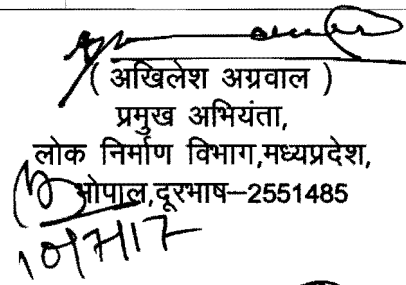 ( अखिलेश अग्रवाल )
प्रमुख अभियंता,
लोक निर्माण विभाग,मध्यप्रदेश,
भोपाल,दूरभाष–2551485
10/7/17